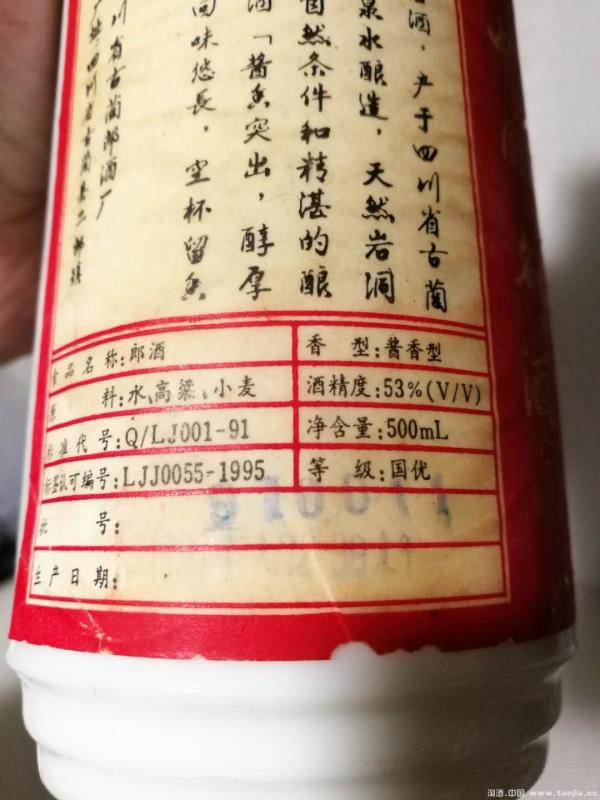 酒，产于四川省古蔺
泉水酿造，天然岩洞
自然条件和精湛的酿
酒「酱香突出，醇厚
回味悠長，空杯留香
川省古蔺郎酒厂
址：四川省古蔺县二郎镇
食品名称：郎酒
香型：酱香型
原料：水、高粱、小麦
酒精度：53%(V/V)
标准代号：Q/LJ001-91
净含量：500mL
标签认可编号：LJJ0055-1995
等级：国优
批号：
生产日期：
淘酒.中国 www.taojiu.cc